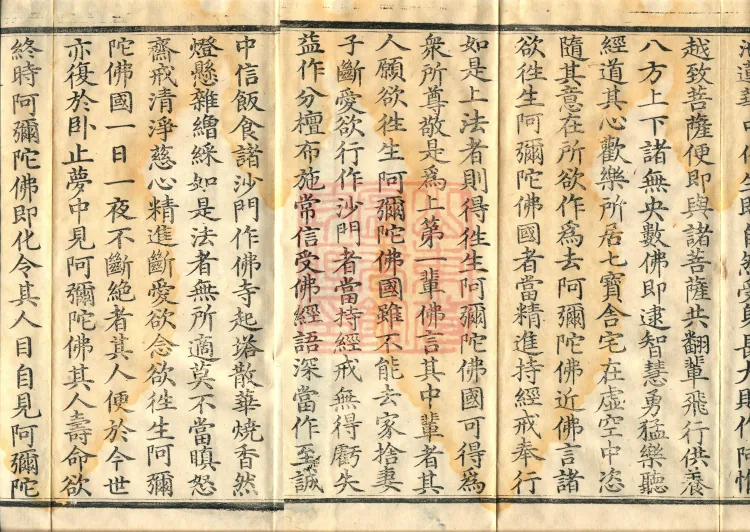 越致菩薩便即與諸菩薩共翻輩飛行供養
八方上下諸無央數佛即逮智慧勇猛樂聽
經道其心歡樂所居七寶舍宅在虛空中恣
隨其意在所欲作為去阿彌陀佛近佛言諸
欲徃生阿彌陀佛國者當精進持經戒奉行
如是上法者則得徃生阿彌陀佛國可得為
衆所尊敬是為上第一輩佛言其中輩者其
人願欲徃生阿彌陀佛國雖不能去家捨妻
子斷愛欲行作沙門者當持經戒無得虧失
益作分檀布施常信受佛經語深當作至誠
中信飯食諸沙門作佛寺起塔散華燒香然
燈懸雜繒綵如是法者無所適莫不當瞋怒
齋戒清淨慈心精進斷愛欲念欲徃生阿彌
陀佛國一日一夜不斷絕者其人便於今世
亦復於卧止夢中見阿彌陀佛其人壽命欲
終時阿彌陀佛即化令其人目自見阿彌陀